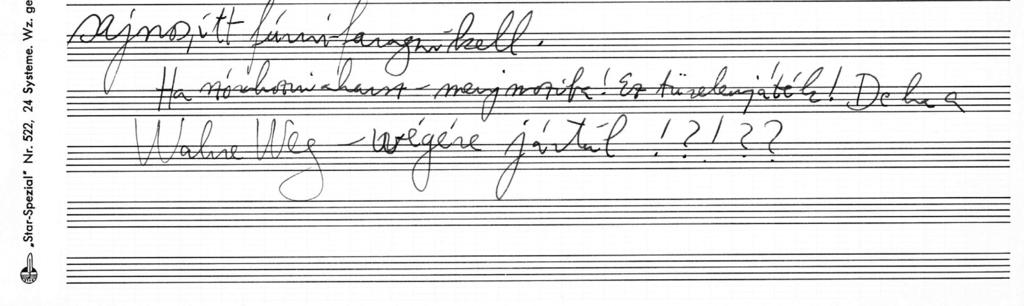 sajnos, itt fúrni-faragni kell.
Ha szórakozni akarsz – menj moziba! Ez türelemjáték! De ha a
Wahre Weg – wégére jártál !?!??
„Star-Spezial" Nr. 522, 24 Systeme. Wz. ge